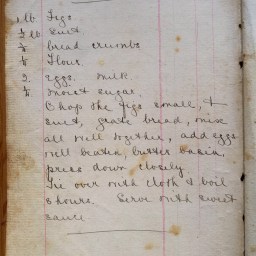 1 lb. Figs.
½ lb. Suet
½ bread crumbs
Flour.
2. eggs. milk.
moist sugar.
Chop the figs small, &
suet, grate bread, mix
all well together, add eggs
well beaten, butter basin.
press down closely
Tie over with cloth & boil
3 hours. Serve with sweet
sauce